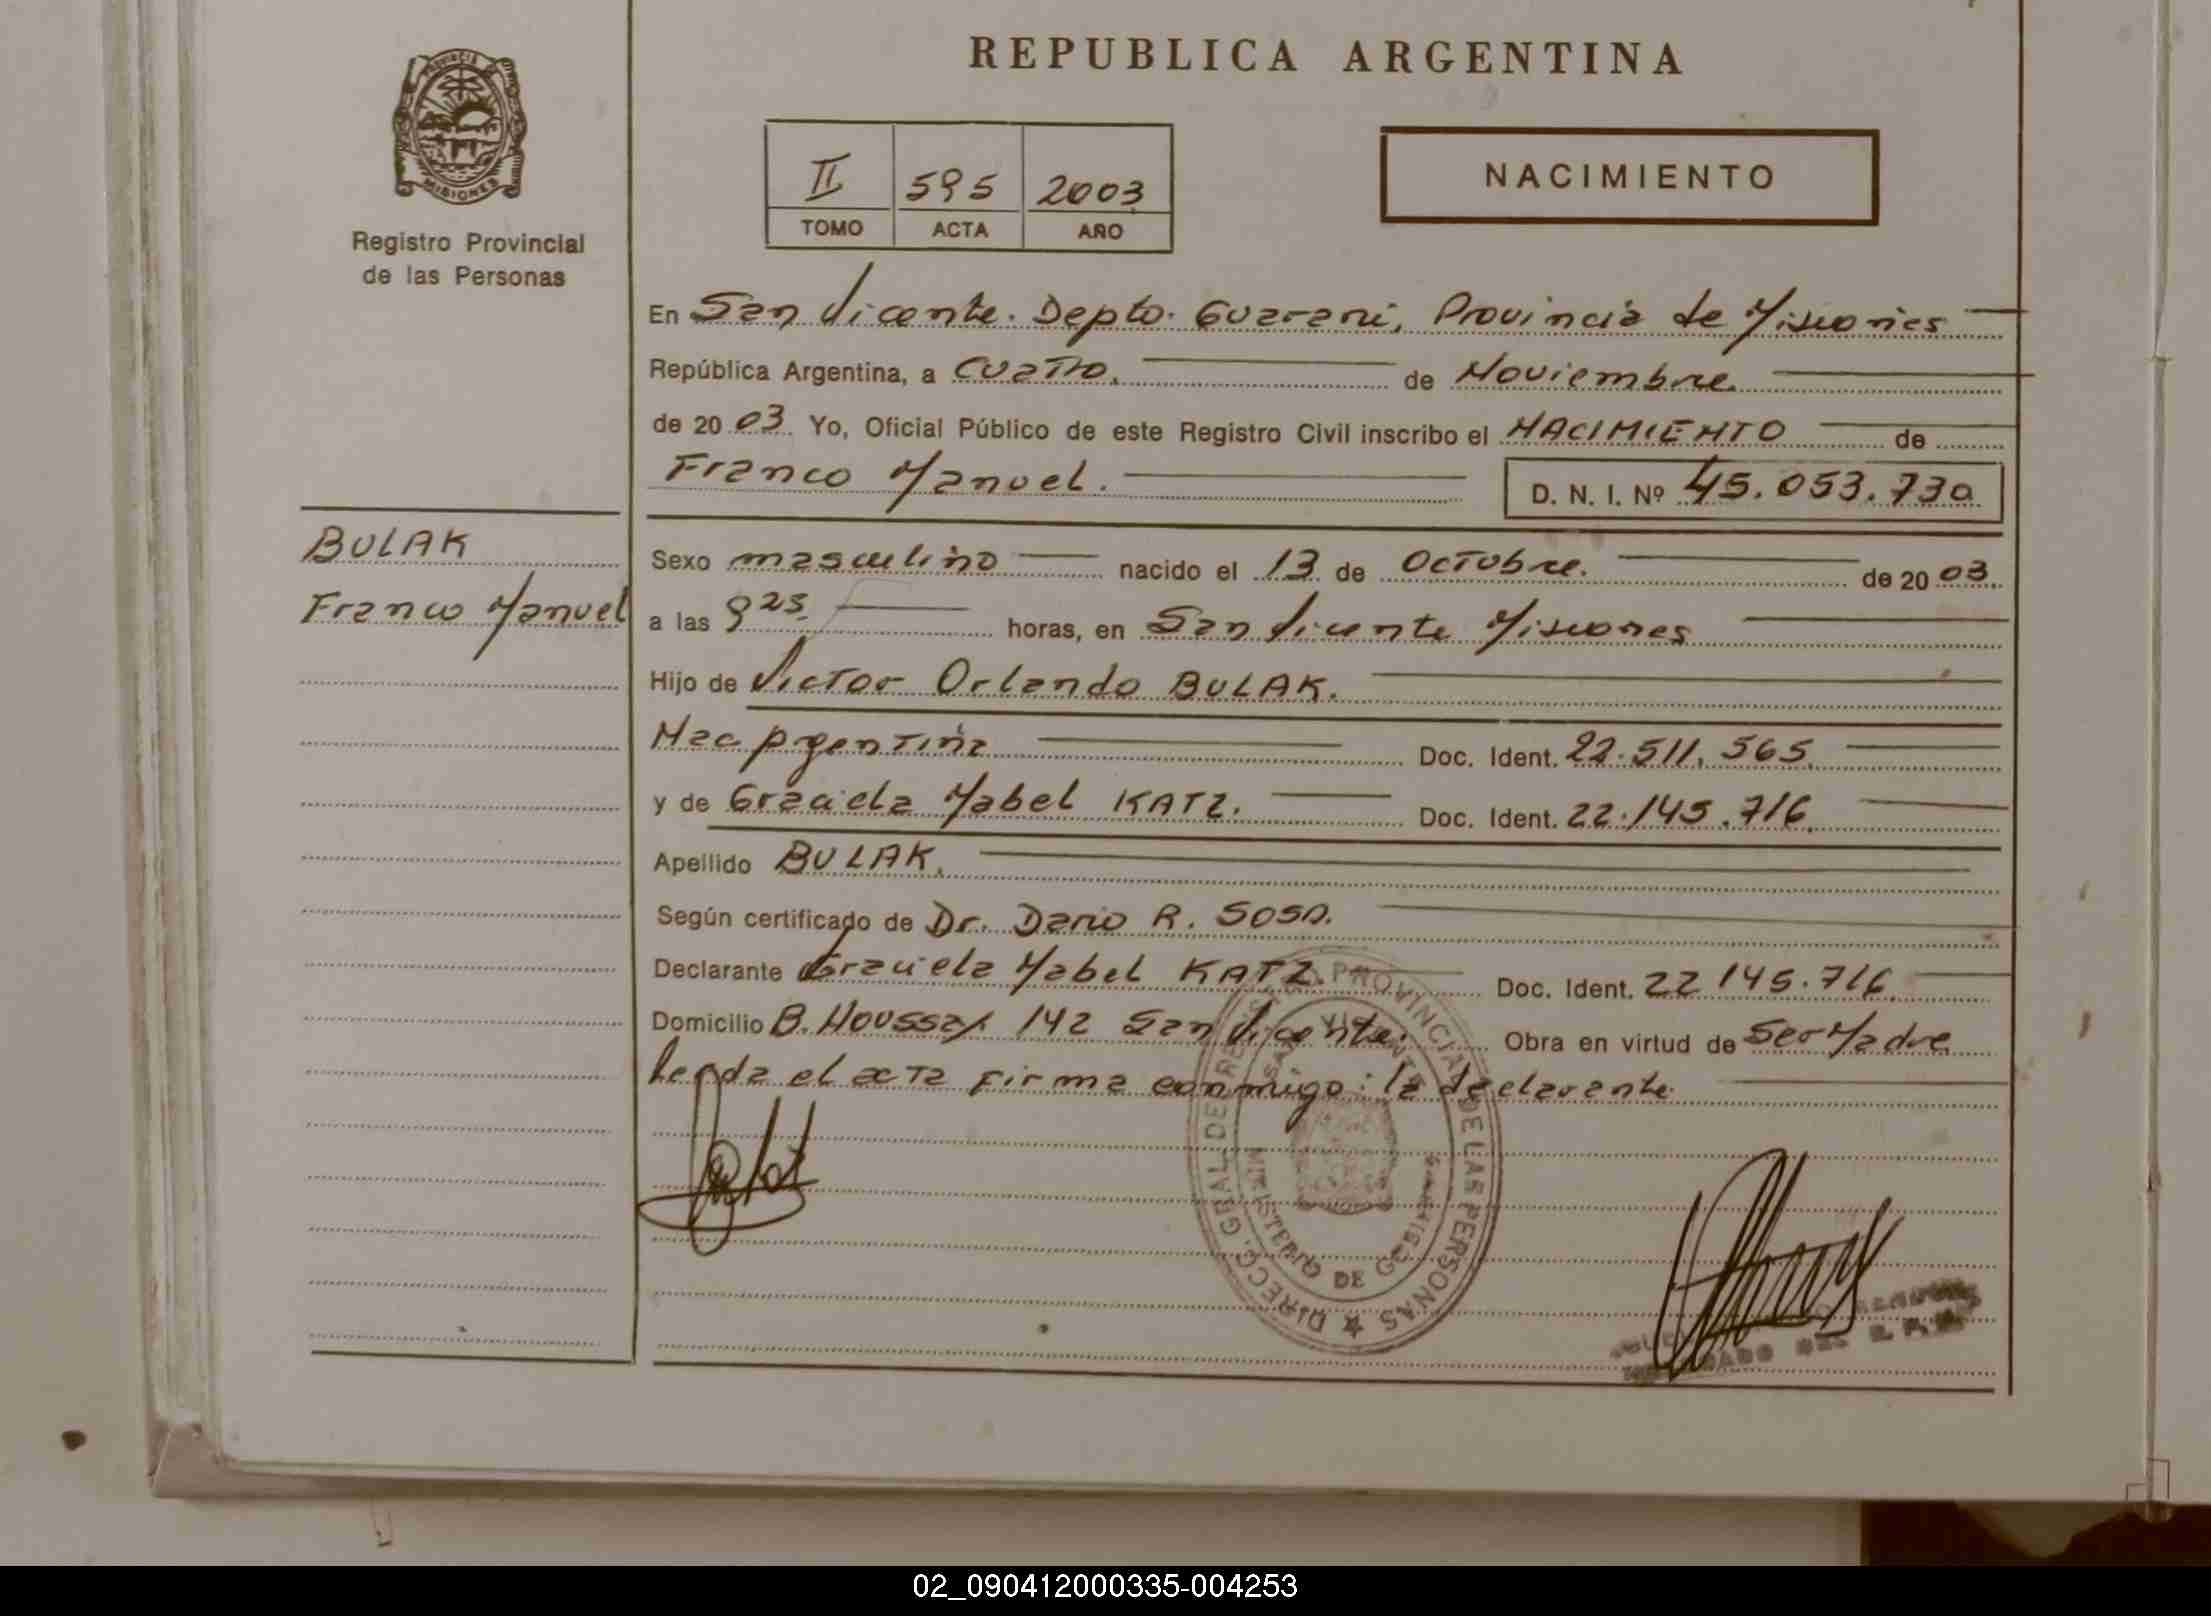 REPUBLICA ARGENTINA
PROVINCIA DE
MISIONES
Registro Provincial
de las Personas
II 595 2003
TOMO ACTA AÑO
NACIMIENTO
En San Vicente. Depto. Guarani, Provincia de Misiones
República Argentina, a Cuatro. de Noviembre.
de 20 03. Yo, Oficial Público de este Registro Civil inscribo el NACIMIENTO de
Franco Manuel. D. N. I. Nº 45.053.730
BULAK
Franco Manuel
Sexo masculino nacido el 13 de Octubre. de 20 03.
a las 9 25 horas, en San Vicente Misiones
Hijo de Victor Orlando BULAK.
Nac Argentina Doc. Ident. 22.511.565.
y de Graciela Mabel KATZ. Doc. Ident. 22.145.716.
Apellido BULAK.
Según certificado de Dr. Dario R. SOSA.
Declarante Graciela Mabel KATZ. Doc. Ident. 22 145.716.
Domicilio B. Houssay 142 San Vicente. Obra en virtud de Ser Madre
Leida el acta firma conmigo: la declarante.
DIRECC. GRAL. DE REGISTRO PROVINCIAL DE LAS PERSONAS
SAN VICENTE
MINISTERIO DE GOBIERNO
DEL R. P. P.
02_090412000335-004253